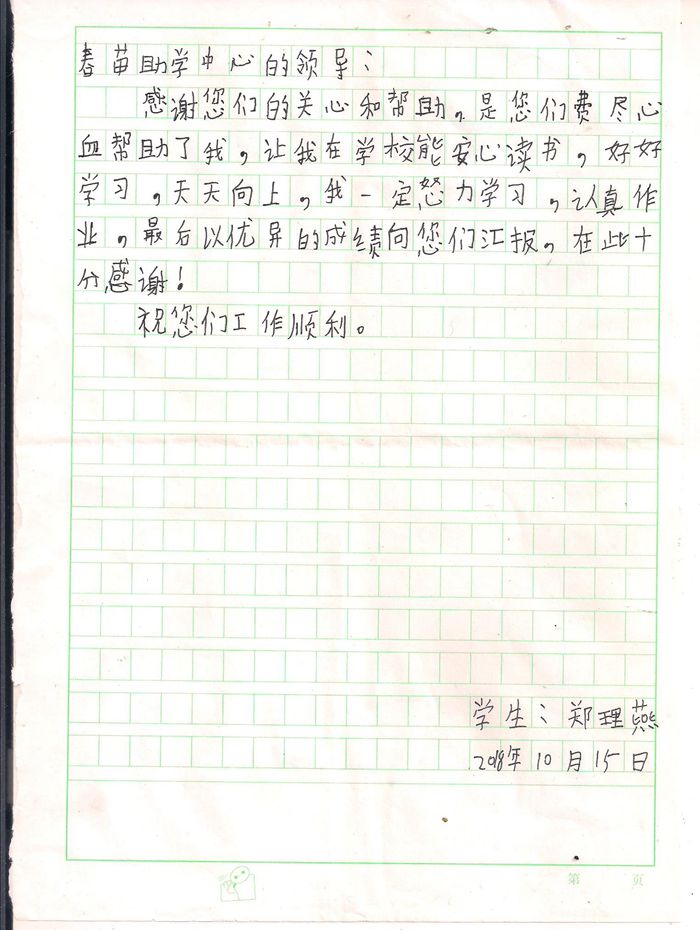 春苗助学中心的领导：
感谢您们的关心和帮助。是您们费尽心
血帮助了我，让我在学校能安心读书，好好
学习，天天向上，我一定怒力学习，认真作
业，最后以优异的成绩向您们汇报。在此十
分感谢！
祝您们工作顺利。
学生：郑理燕
2018年10月15日
第 页